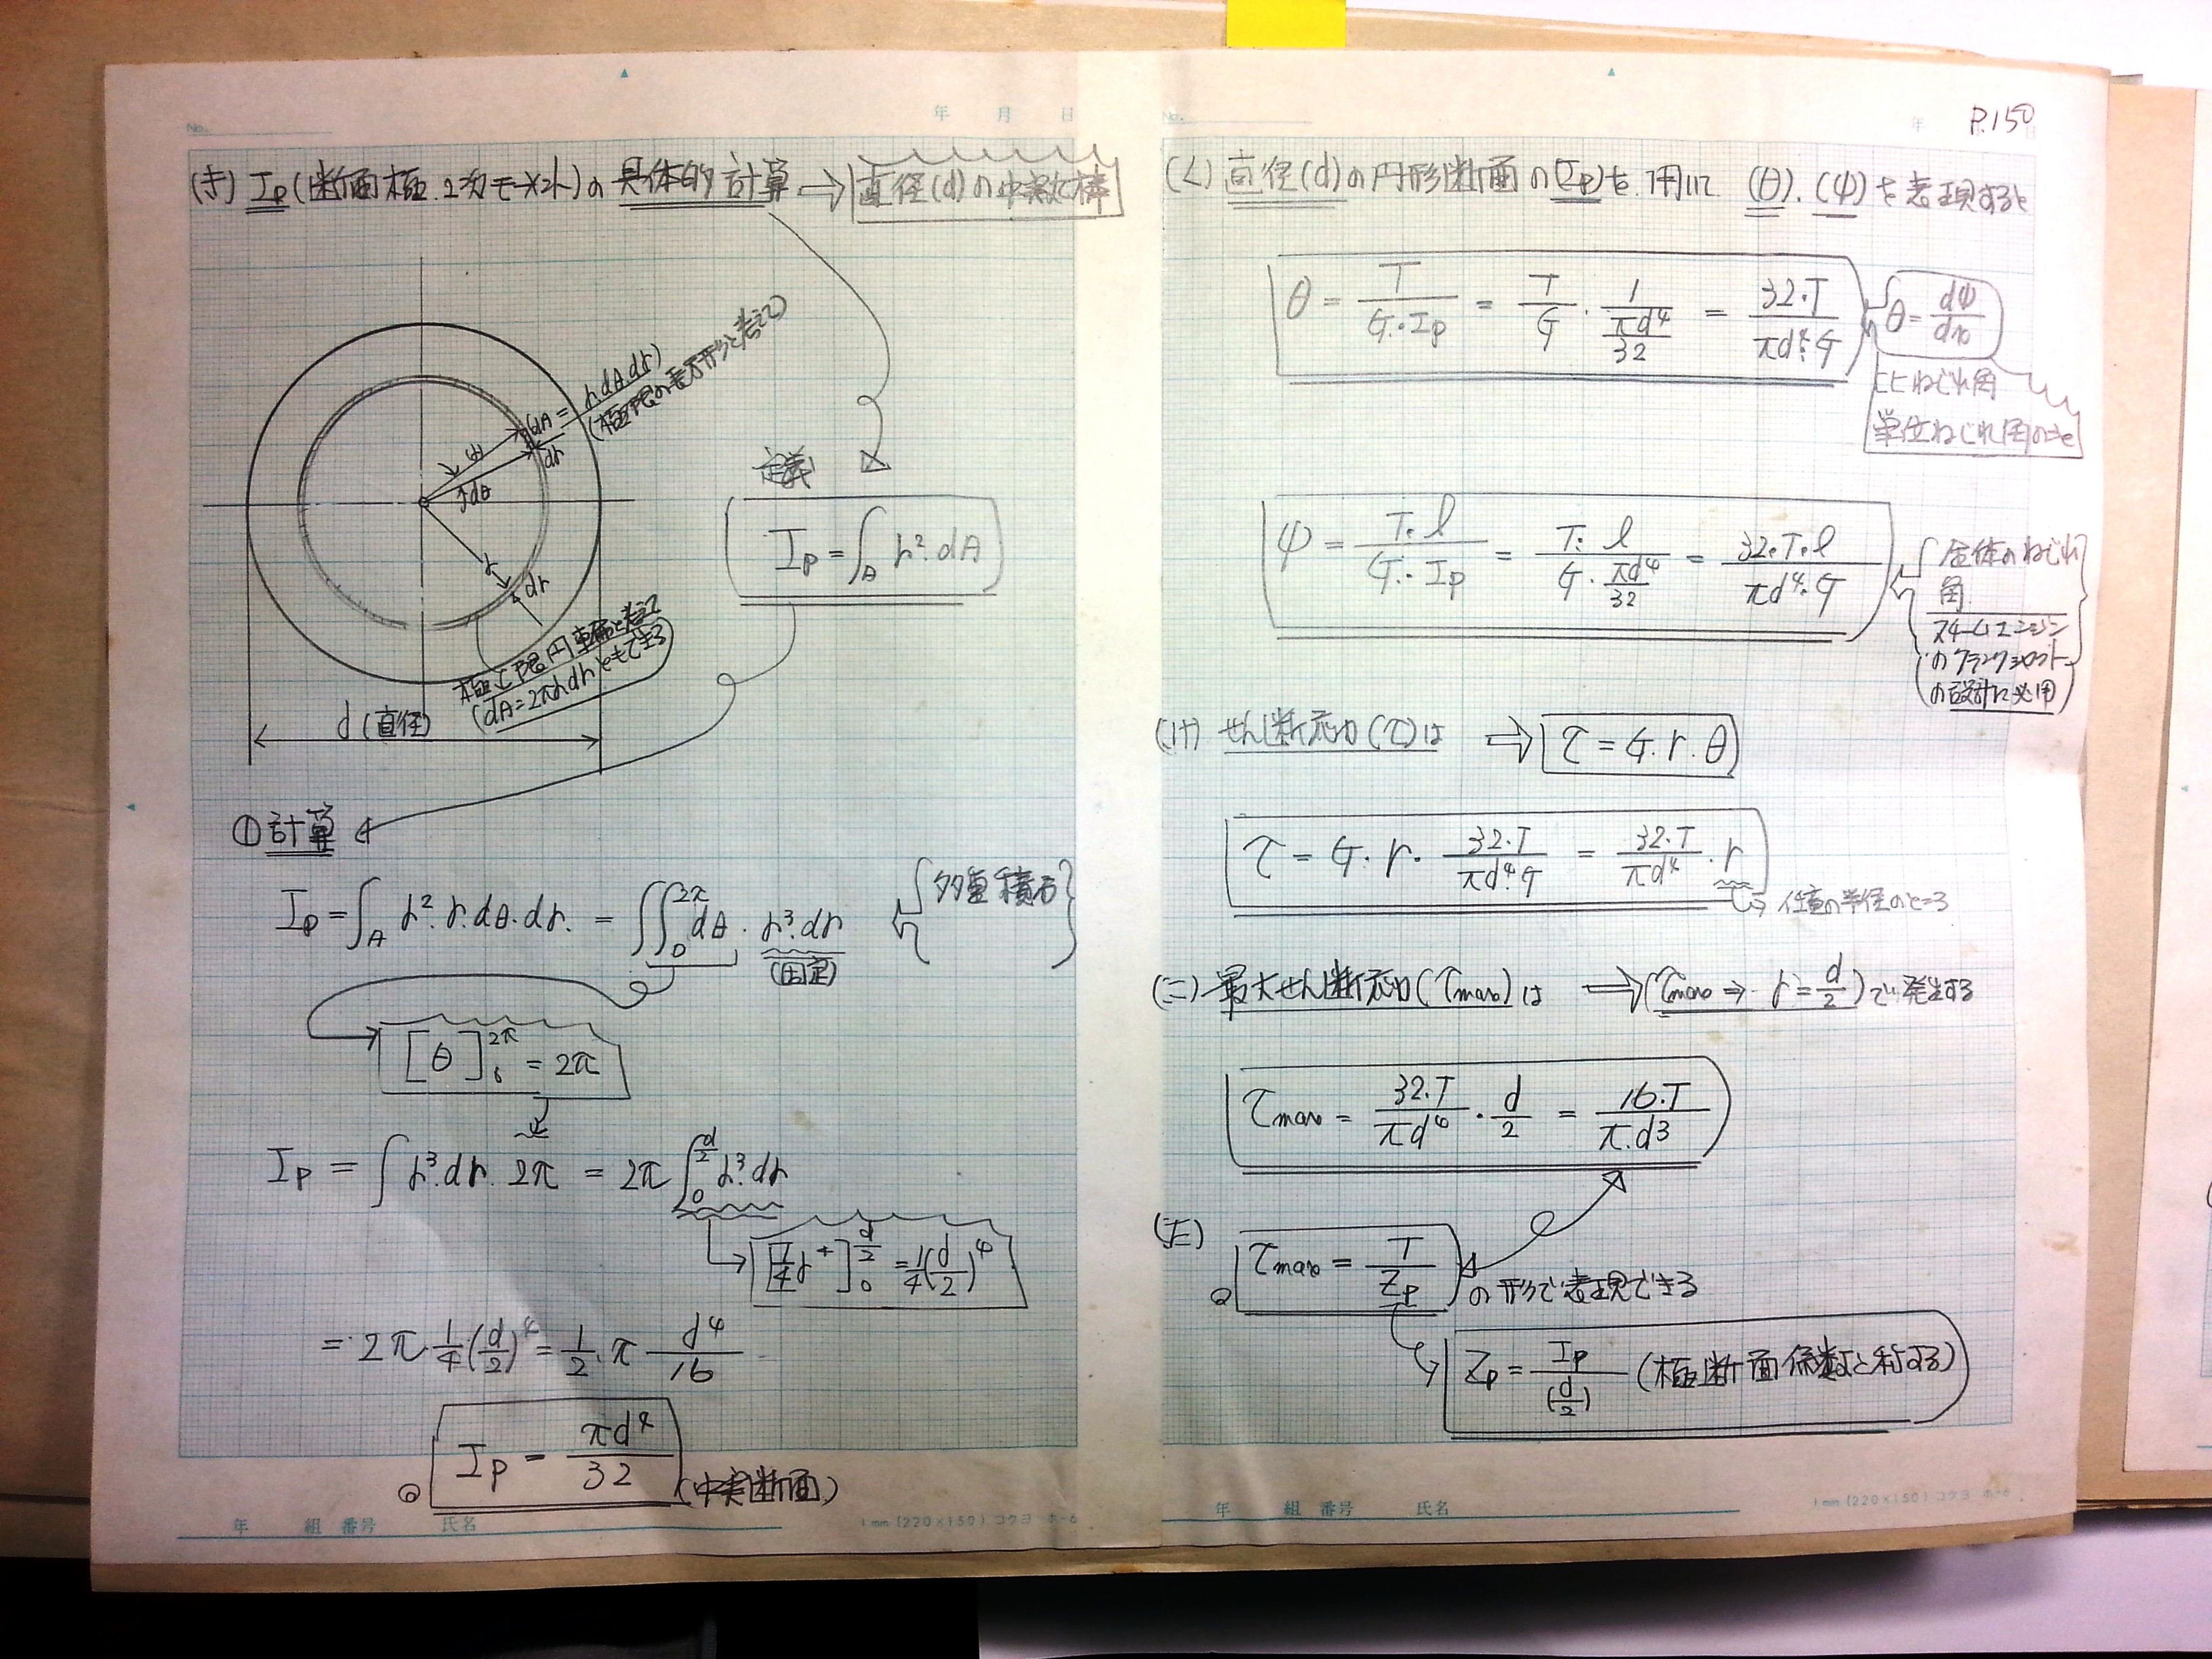 No.
年 月 日
(キ) Ip(断面極.2次モーメント)の具体的計算 ⇒ 直径(d)の中実丸棒
dA = r.dθ.dr)
(極限の長方形と考えて)
dr
dθ
r
dr
極く限円車輪と考えて
(dA=2πrdrともできる)
d (直径)
定義
Ip = ∫A r².dA
① 計算
Ip = ∫A r².r.dθ.dr. = ∬₀^2π dθ . r³.dr
(固定)
多重積分
[θ]₀^2π = 2π
Ip = ∫ r³.dr. 2π = 2π ∫₀^(d/2) r³.dr
[1/4 r⁴]₀^(d/2) = 1/4 (d/2)⁴
= 2π 1/4 (d/2)⁴ = 1/2 . π d⁴/16
Ip = πd⁴/32 (中実断面)
年 組 番号 氏名
1mm (220×150) コクヨ ホ-6
No.
年
P.150
(く) 直径(d)の円形断面の(Ip)を.用いて (θ).(ψ)を表現すると
θ = T/(G.Ip) = T/G . 1/(πd⁴/32) = 32.T/(πd⁴.G)
θ = dψ/dx
比ねじれ角
単位ねじれ角のこと
ψ = T.l/(G.Ip) = T.l/(G.πd⁴/32) = 32.T.l/(πd⁴.G)
全体のねじれ
角
スチームエンジン
のクランクシャフト
の設計に必用
(け) せん断応力(τ)は ⇒ τ = G.r.θ
τ = G.r. 32.T/(πd⁴.G) = 32.T/(πd⁴) . r
任意の半径のところ
(こ) 最大せん断応力(τmax)は ⇒ (τmax ⇒ r = d/2)で発生する
τmax = 32.T/(πd⁴) . d/2 = 16.T/(π.d3)
τmax = T/Zp の形で表現できる
Zp = Ip/(d/2) (極断面係数と称する)
年 組 番号 氏名
1mm (220×150) コクヨ ホ-6